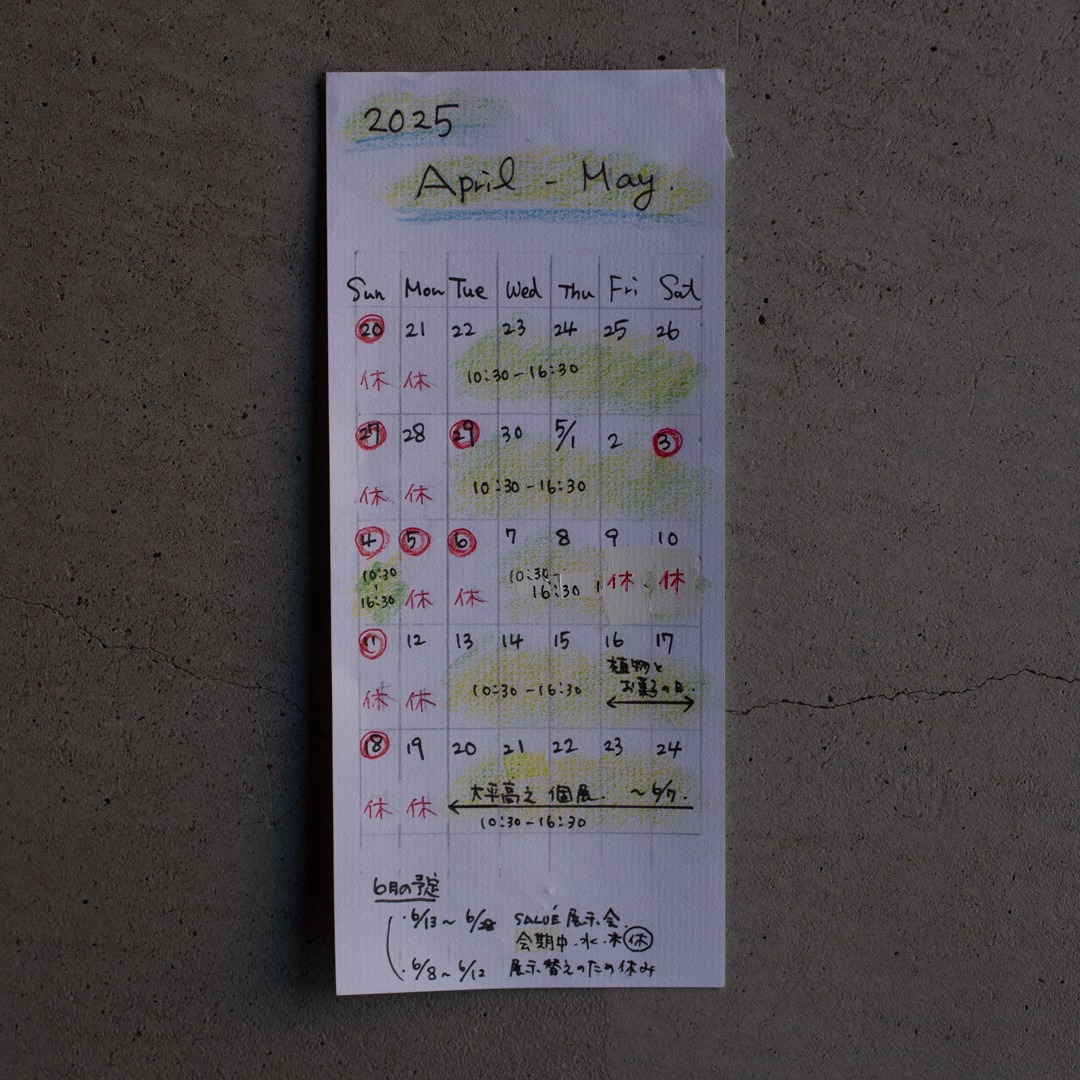 2025
April - May.
Sun Mon Tue Wed Thu Fri Sat
20 21 22 23 24 25 26
休 休 10:30-16:30
27 28 29 30 5/1 2 3
休 休 10:30-16:30
4 5 6 7 8 9 10
10:30-16:30 休 休 10:30-16:30 休 休
11 12 13 14 15 16 17
植物と
お菓子の日
休 休 10:30-16:30
18 19 20 21 22 23 24
休 休 大平高之 個展. ~6/7.
10:30-16:30
6月の予定
・6/13~6/28 SALUÉ 展示会.
会期中.水.木 休
・6/8~6/12 展示替えのため休み